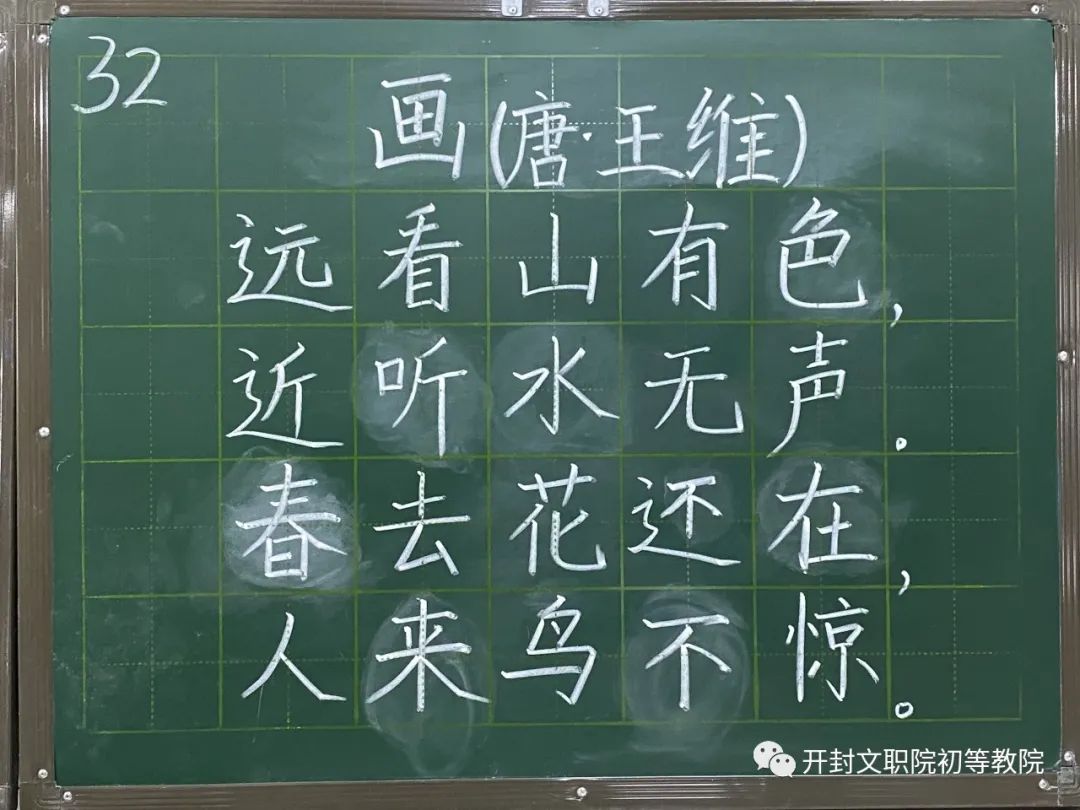 32
画(唐·王维)
远看山有色,
近听水无声。
春去花还在,
人来鸟不惊。
开封文职院初等教院